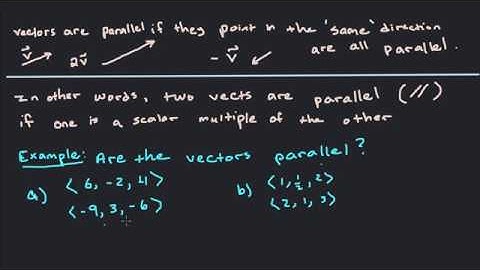 vectors are parallel if they point in the 'same' direction
v⃗ 2v⃗ -v⃗ are all parallel.
In other words, two vects are parallel (//)
if one is a scalar multiple of the other
Example: Are the vectors parallel?
a) ⟨6, -2, 4⟩ b) ⟨1, ½, 2⟩
⟨-9, 3, -6⟩ ⟨2, 1, 3⟩